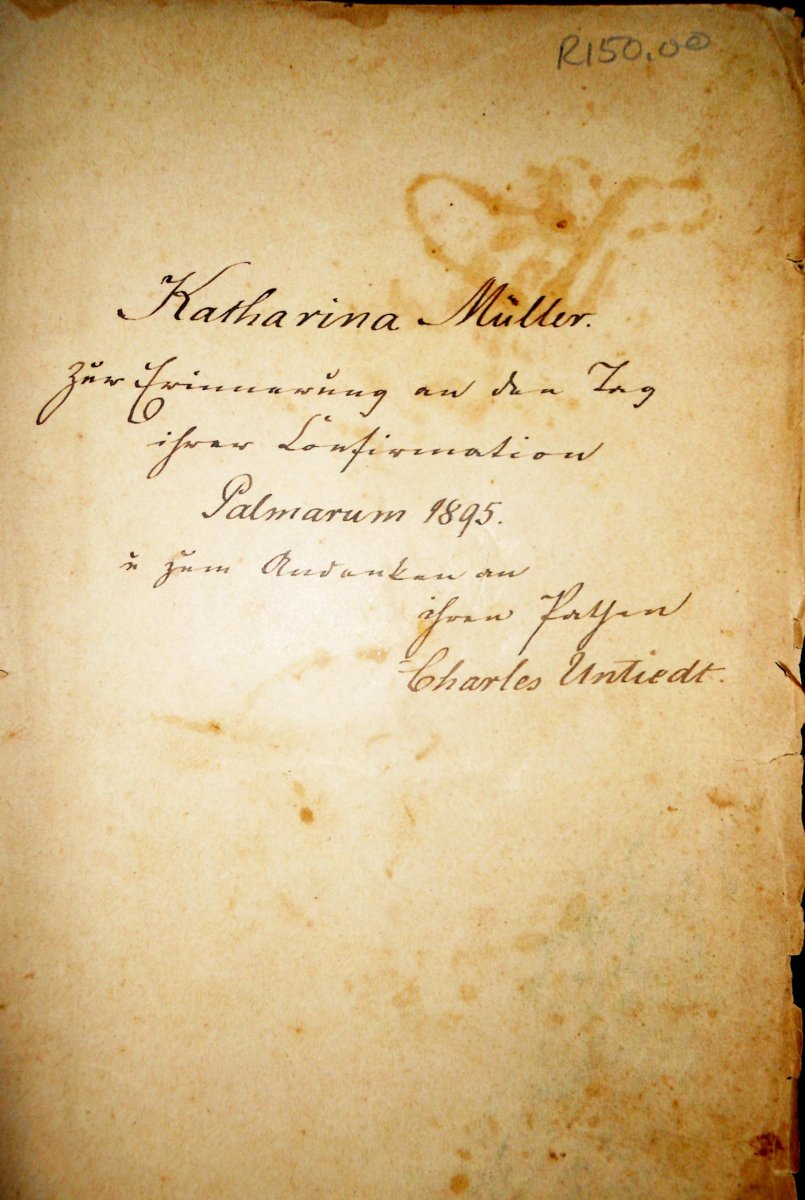 R150.00
Katharina Müller.
Zur Erinnerung an den Tag
ihrer Confirmation
Palmarum 1895.
u zum Andenken an
ihren Pathen
Charles Untiedt.